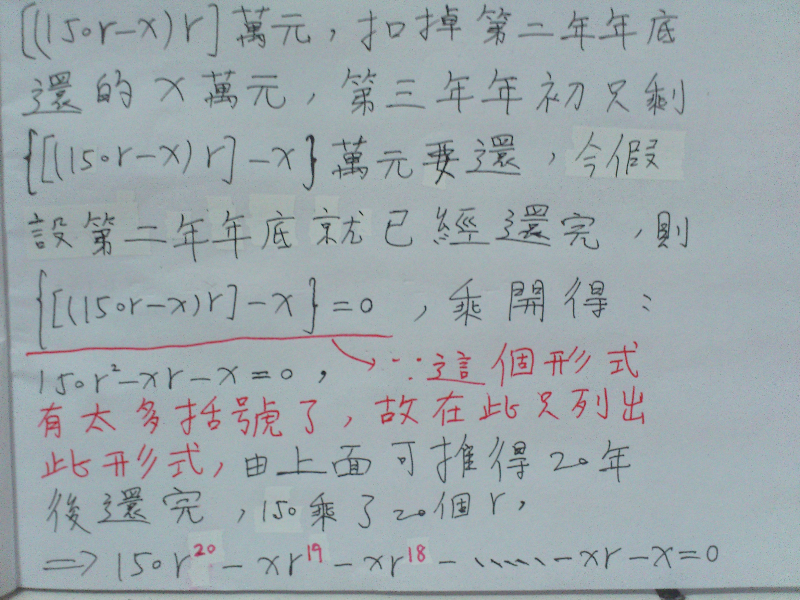 [(150r-x)r]萬元,扣掉第二年年底
還的x萬元,第三年年初只剩
{[(150r-x)r]-x}萬元要還,今假
設第二年年底就已經還完,則
{[(150r-x)r]-x}=0,乘開得:
150r²-xr-x=0, → ∵這個形式
有太多括號了,故在此只列出
此形式,由上面可推得20年
後還完,150乘了20個r,
⇒150r²⁰-xr¹⁹-xr¹⁸-......-xr-x=0